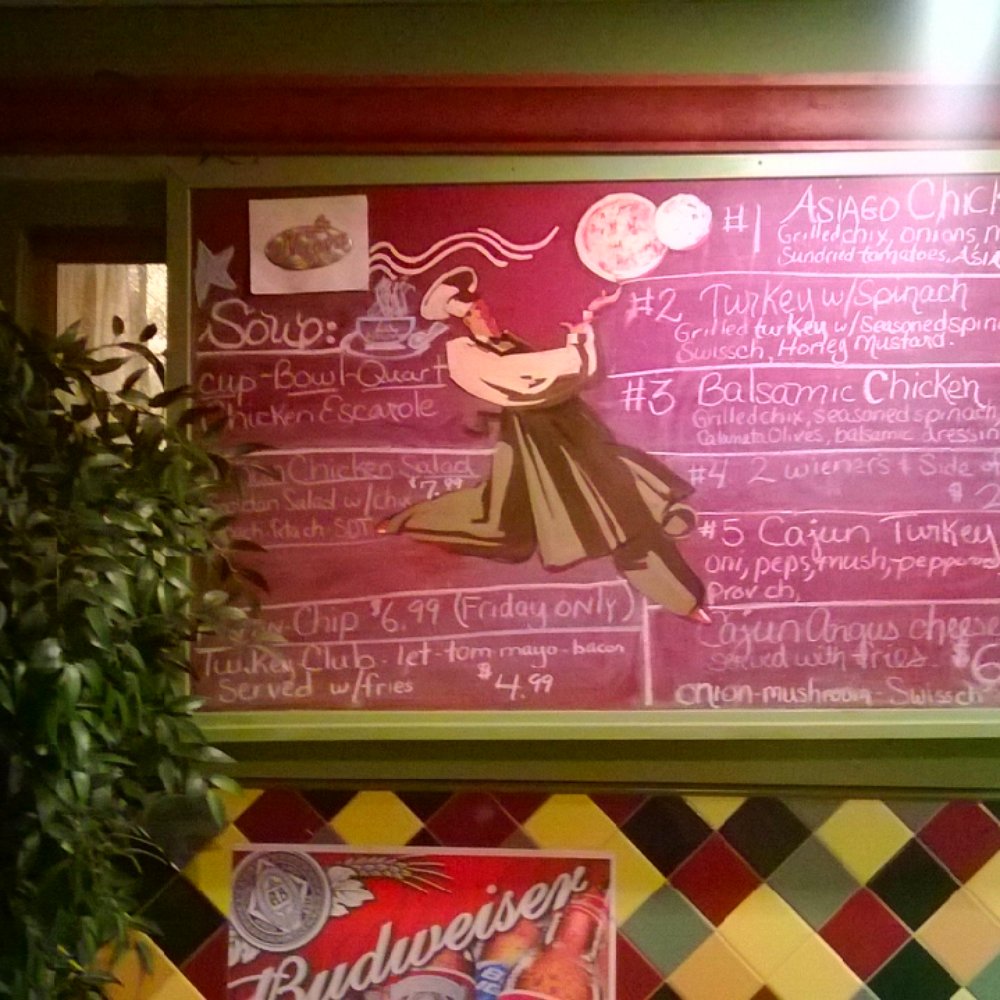 Soup:
cup-Bowl-Quart
Chicken Escarole
Chicken Salad
Salad w/chix $7.99
Chip $6.99 (Friday only)
Turkey Club - let-tom mayo-bacon
Served w/fries $4.99
#1 Asiago Chick
Grilled chix, onions m
Sundried tomatoes, Asia
#2 Turkey w/Spinach
Grilled turkey w/ Seasoned spin
Swissch, Honey Mustard.
#3 Balsamic Chicken
Grilled chix, seasoned spinach
Calamata Olives, balsamic dressin
#4 2 wieners & Side of
$2
#5 Cajun Turkey
oni, peps, mush, pepp
Prov ch,
Cajun Angus cheese
served with fries. $6
onion-mushroom-Swissch
Budweiser